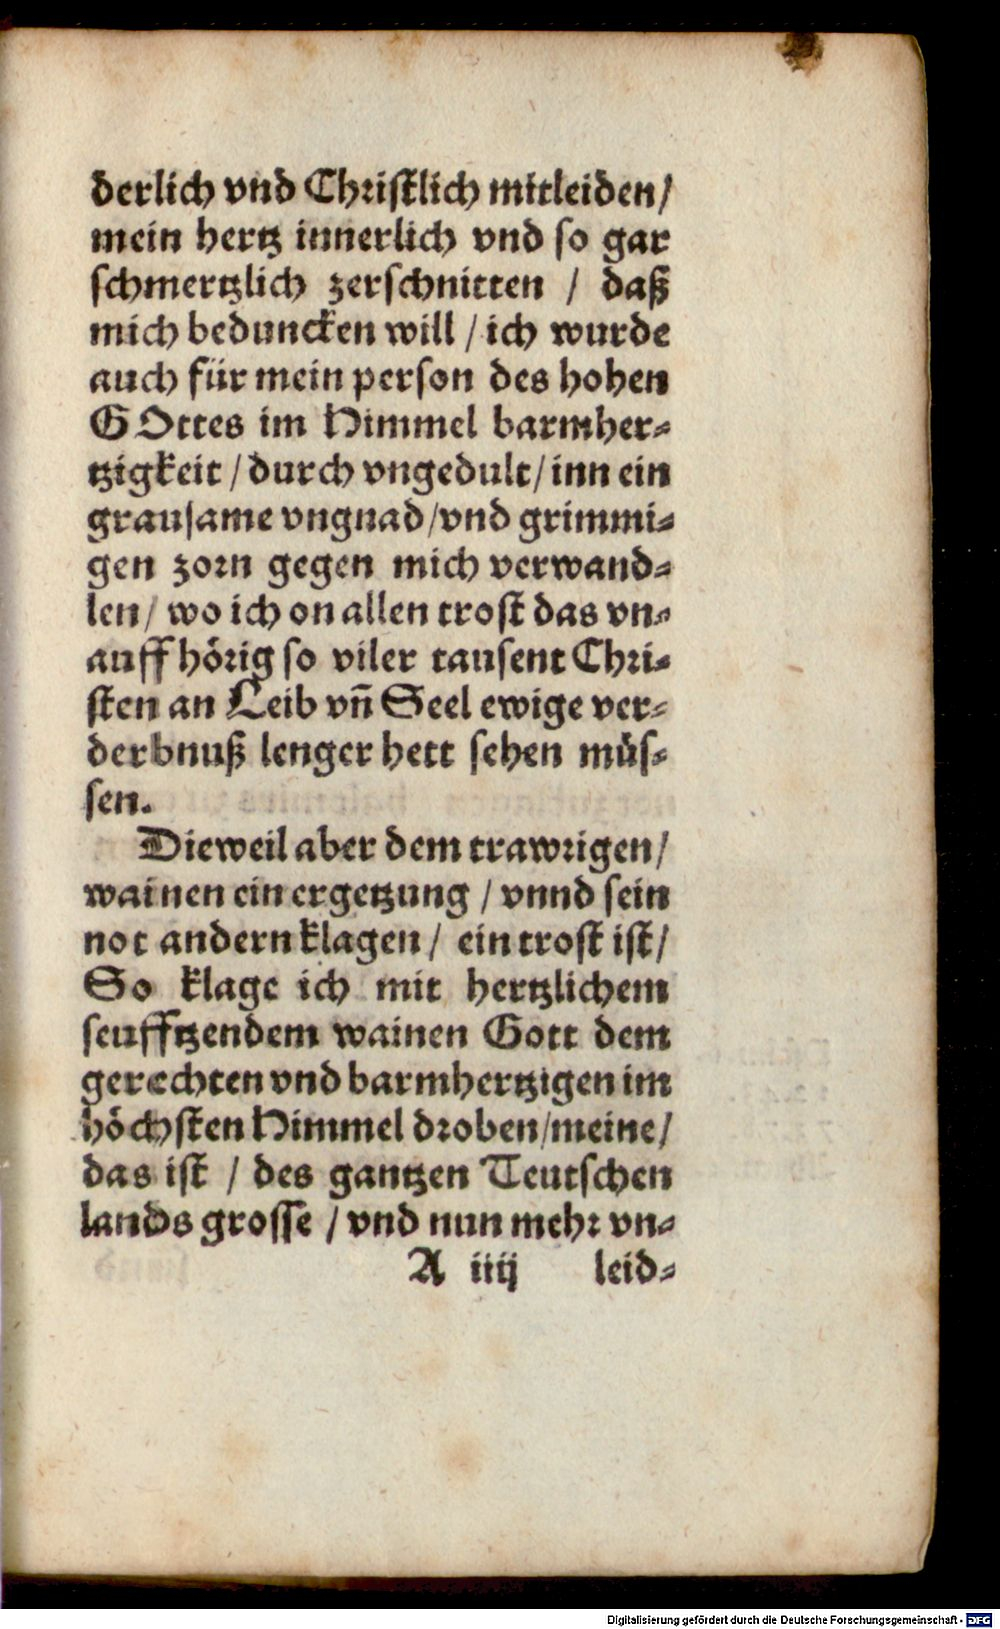 derlich vnd Christlich mitleiden/
mein hertz innerlich vnd so gar
schmertzlich zerschnitten / daß
mich beduncken will / ich wurde
auch für mein person des hohen
GOttes im Himmel barmher-
tzigkeit / durch vngedult / inn ein
grausame vngnad / vnd grimmi-
gen zorn gegen mich verwand-
len / wo ich on allen trost das vn-
auffhörig so viler tausent Chri-
sten an Leib vñ Seel ewige ver-
derbnuß lenger hett sehen müs-
sen.
Dieweil aber dem trawrigen/
wainen ein ergetzung / vnnd sein
not andern klagen / ein trost ist/
So klage ich mit hertzlichem
seufftzendem wainen Gott dem
gerechten vnd barmhertzigen im
höchsten Himmel droben/meine/
das ist / des gantzen Teutschen
lands grosse / vnd nun mehr vn-
A iiij leid-
Digitalisierung gefördert durch die Deutsche Forschungsgemeinschaft - DFG